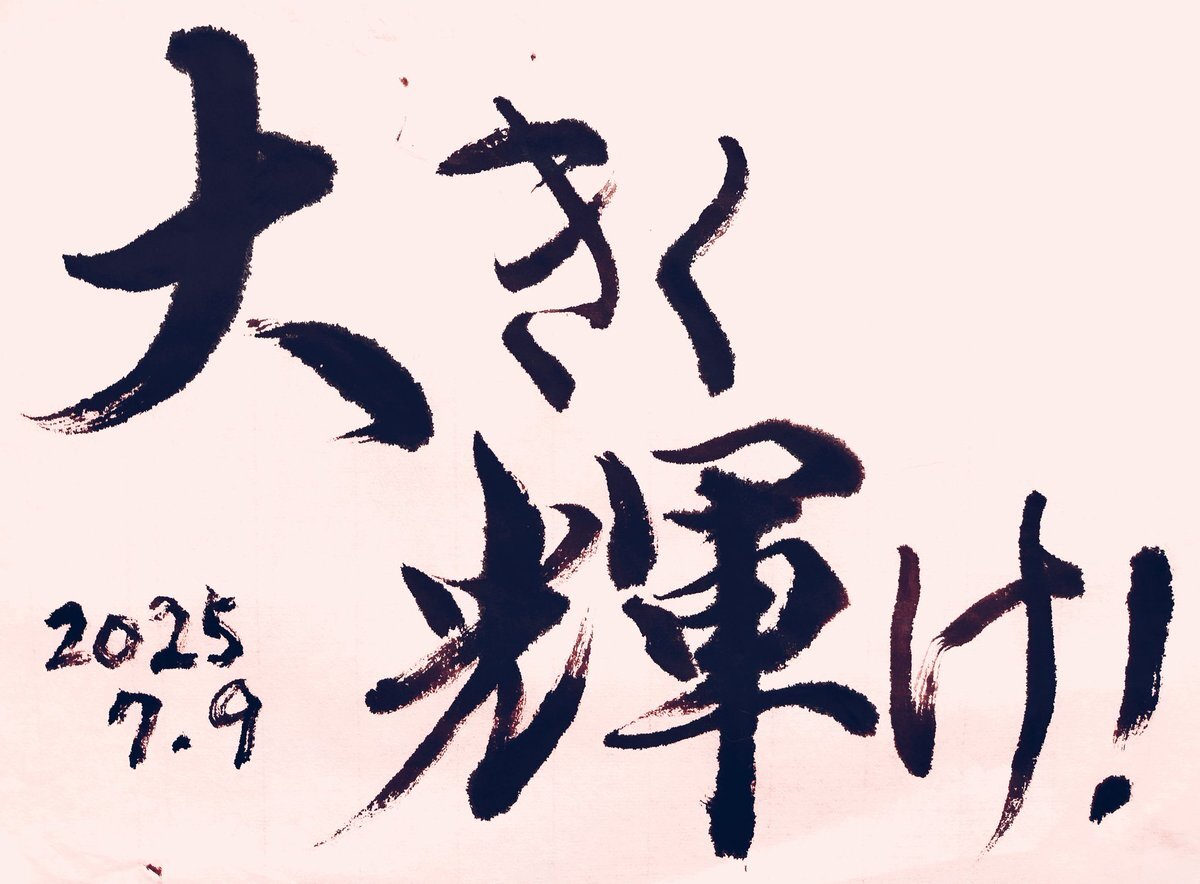 大きく
輝け!
2025
7.9